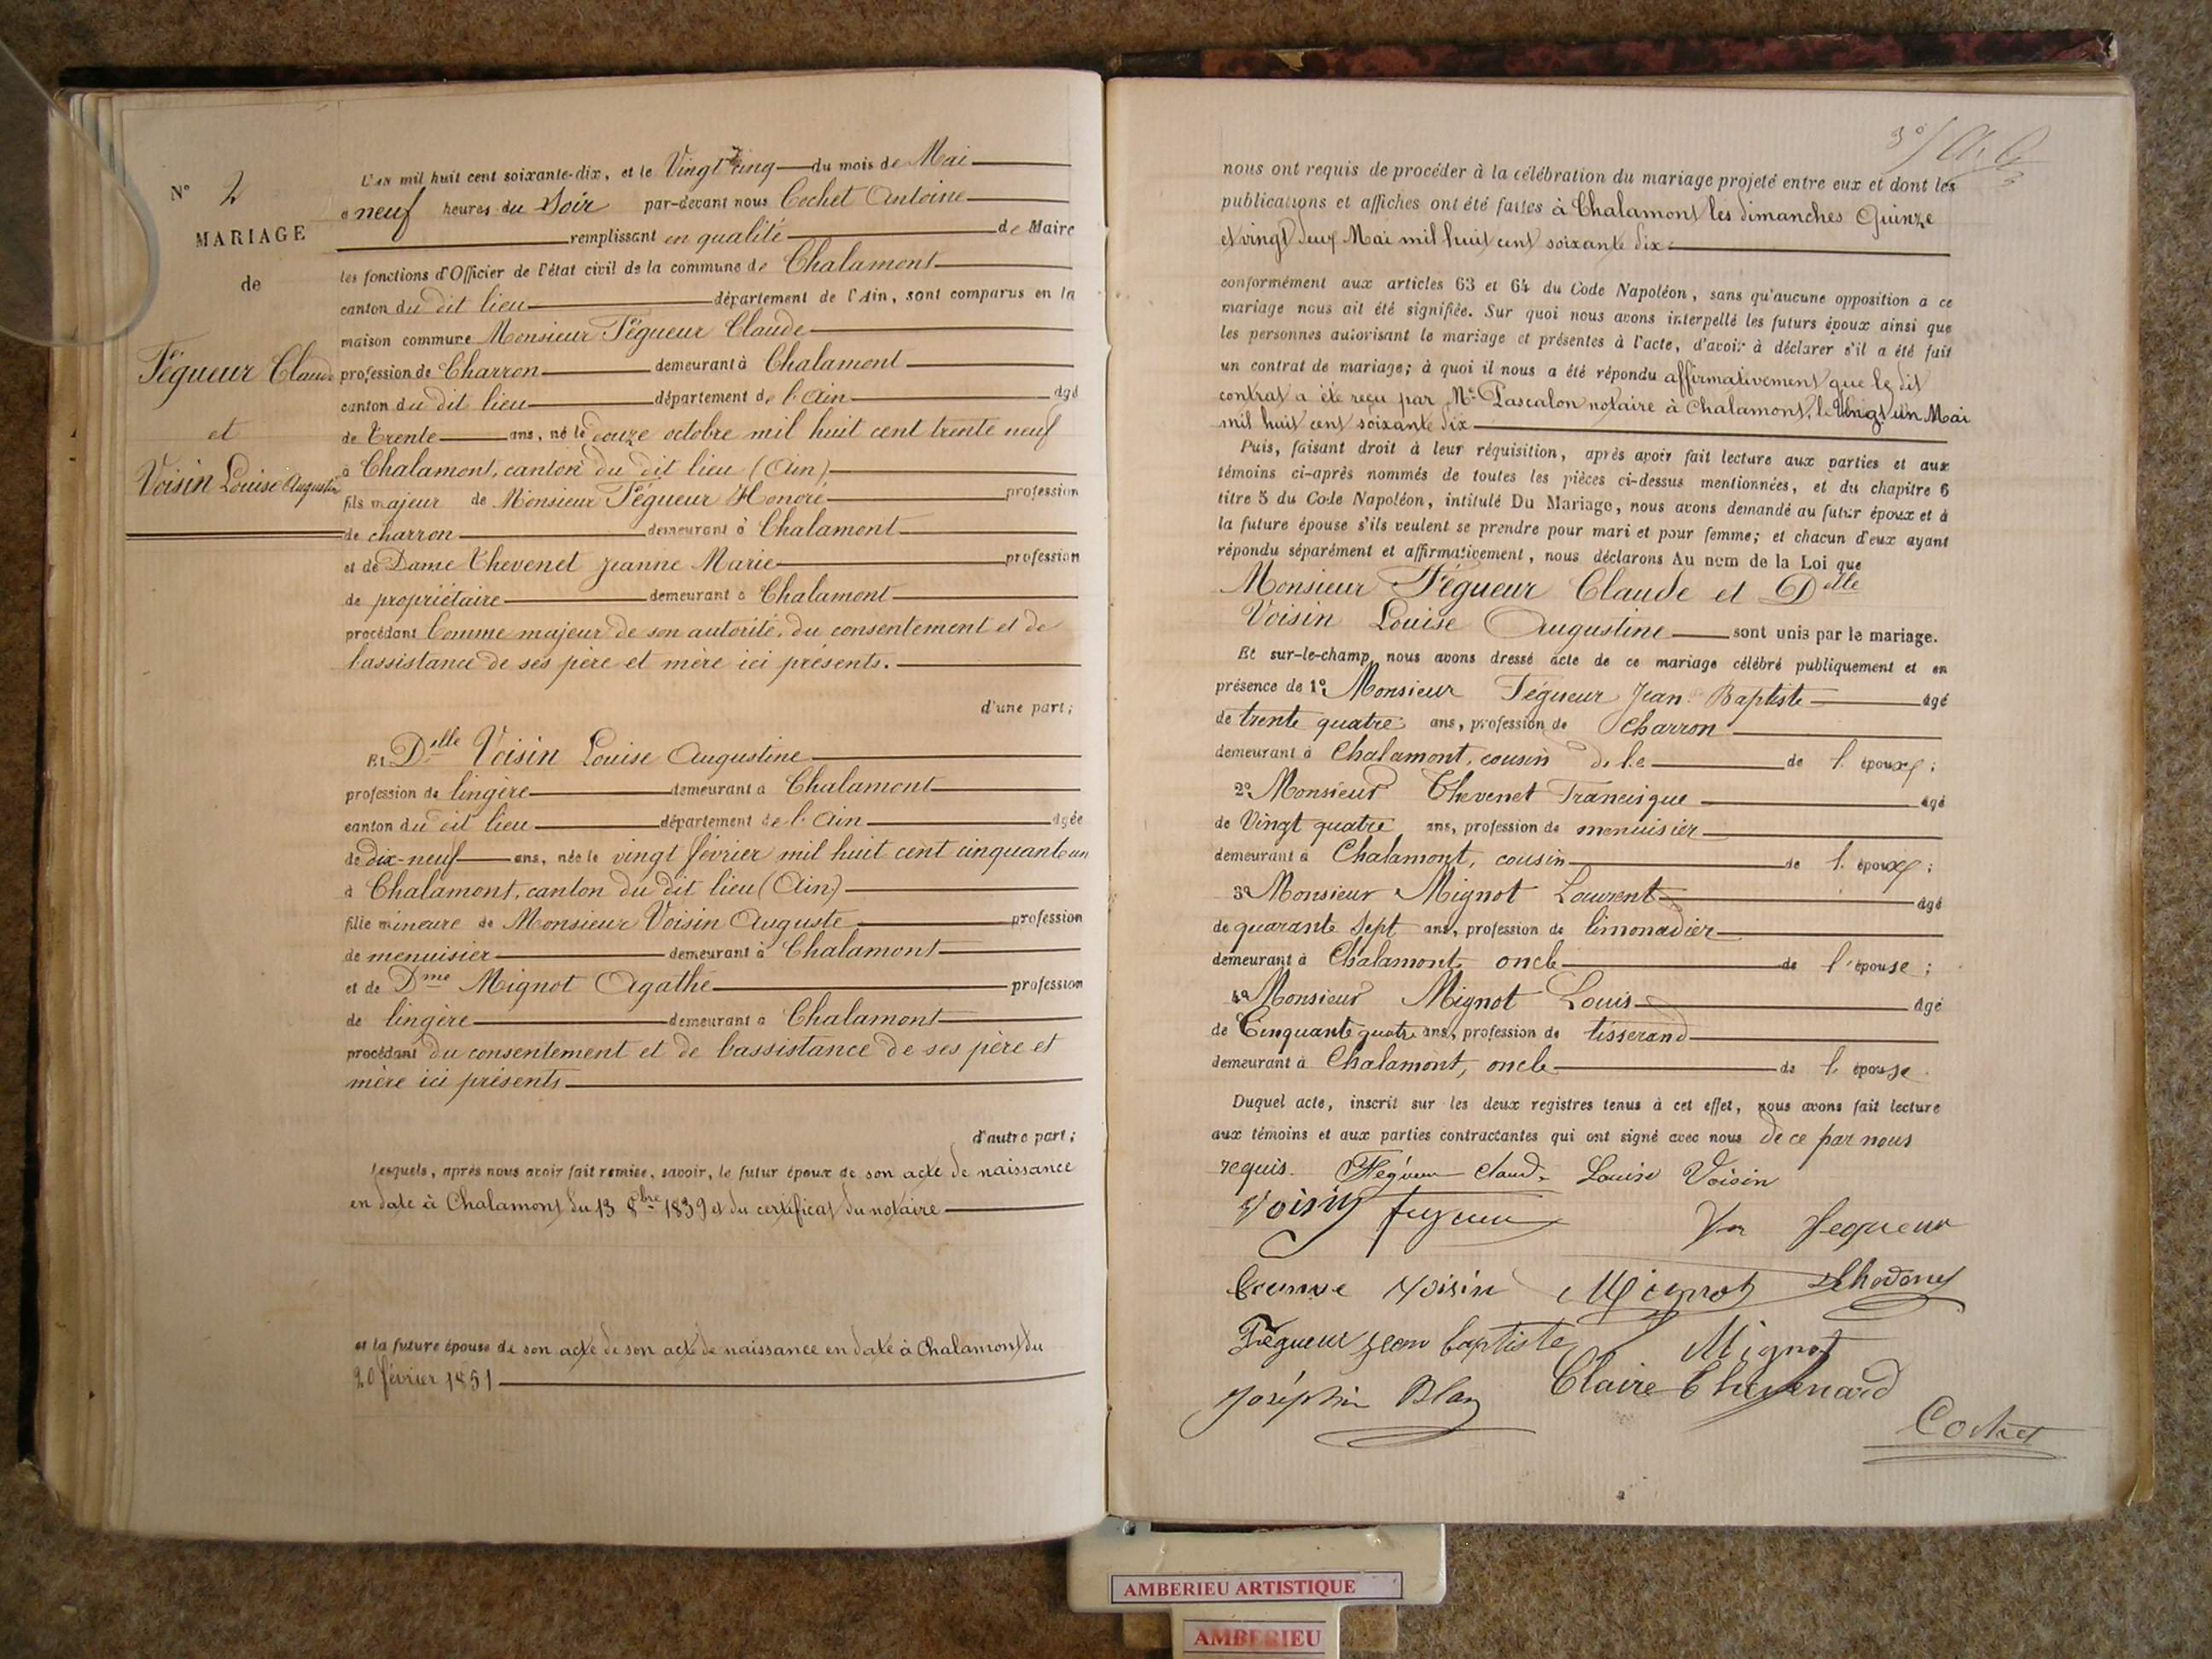 N° 2
MARIAGE
de
Fégueur Claude
et
Voisin Louise Augustine
L'AN mil huit cent soixante-dix, et le Vingt cinq du mois de Mai
a neuf heures du Soir par-devant nous Cochet Antoine
remplissant en qualité de Maire
les fonctions d'Officier de l'état civil de la commune de Chalamont
canton du dit lieu département de l'Ain, sont comparus en la
maison commune Monsieur Fégueur Claude
profession de Charron demeurant à Chalamont
canton du dit lieu département de l'Ain âgé
de Trente ans, né le douze octobre mil huit cent trente neuf
à Chalamont, canton du dit lieu (Ain)
fils majeur de Monsieur Fégueur Honoré profession
de charron demeurant à Chalamont
et de Dame Thevenet Jeanne Marie profession
de propriétaire demeurant à Chalamont
procédant Comme majeur de son autorité, du consentement et de
l'assistance de ses père et mère ici présents.
d'une part;
Et Delle Voisin Louise Augustine
profession de lingère demeurant à Chalamont
canton du dit lieu département de l'Ain âgée
de dix-neuf ans, née le vingt février mil huit cent cinquante un
à Chalamont, canton du dit lieu (Ain)
fille mineure de Monsieur Voisin Auguste profession
de menuisier demeurant à Chalamont
et de Dme Mignot Agathe profession
de lingère demeurant à Chalamont
procédant du consentement et de l'assistance de ses père et
mère ici présents
d'autre part;
Lesquels, après nous avoir fait remise, savoir, le futur époux de son acte de naissance
en date à Chalamont du 13 8bre 1839 et du certificat du notaire
et la future épouse de son acte de son acte de naissance en date à Chalamont du
20 février 1851
nous ont requis de procéder à la célébration du mariage projeté entre eux et dont les
publications et affiches ont été faites à Chalamont les dimanches Quinze
et vingt deux Mai mil huit cent soixante dix
conformément aux articles 63 et 64 du Code Napoléon, sans qu'aucune opposition a ce
mariage nous ait été signifiée. Sur quoi nous avons interpellé les futurs époux ainsi que
les personnes autorisant le mariage et présentes à l'acte, d'avoir à déclarer s'il a été fait
un contrat de mariage; à quoi il nous a été répondu affirmativement que le dit
contrat a été reçu par Me Pascalon notaire à Chalamont, le Vingt un Mai
mil huit cent soixante dix
Puis, faisant droit à leur réquisition, après avoir fait lecture aux parties et aux
témoins ci-après nommés de toutes les pièces ci-dessus mentionnées, et du chapitre 6
titre 5 du Code Napoléon, intitulé Du Mariage, nous avons demandé au futur époux et à
la future épouse s'ils veulent se prendre pour mari et pour femme; et chacun d'eux ayant
répondu séparément et affirmativement, nous déclarons Au nom de la Loi que
Monsieur Fégueur Claude et Delle
Voisin Louise Augustine sont unis par le mariage.
Et sur-le-champ nous avons dressé acte de ce mariage célébré publiquement et en
présence de 1° Monsieur Fégueur Jean Baptiste âgé
de trente quatre ans, profession de Charron
demeurant à Chalamont, cousin de l'époux;
2° Monsieur Thevenet Francisque âgé
de Vingt quatre ans, profession de menuisier
demeurant à Chalamont, cousin de l'époux;
3° Monsieur Mignot Laurent âgé
de quarante Sept ans, profession de limonadier
demeurant à Chalamont oncle de l'épouse;
4° Monsieur Mignot Louis âgé
de Cinquante quatre ans, profession de tisserand
demeurant à Chalamont, oncle de l'épouse
Duquel acte, inscrit sur les deux registres tenus à cet effet, nous avons fait lecture
aux témoins et aux parties contractantes qui ont signé avec nous de ce par nous
requis. Fégueur Claude Louise Voisin
Voisin fegueur Fegueur
voisin Mignot
Fégueur jean baptiste Mignot
Joséphin Blanc Claire Thevenard
Cochet
AMBERIEU ARTISTIQUE
AMBERIEU